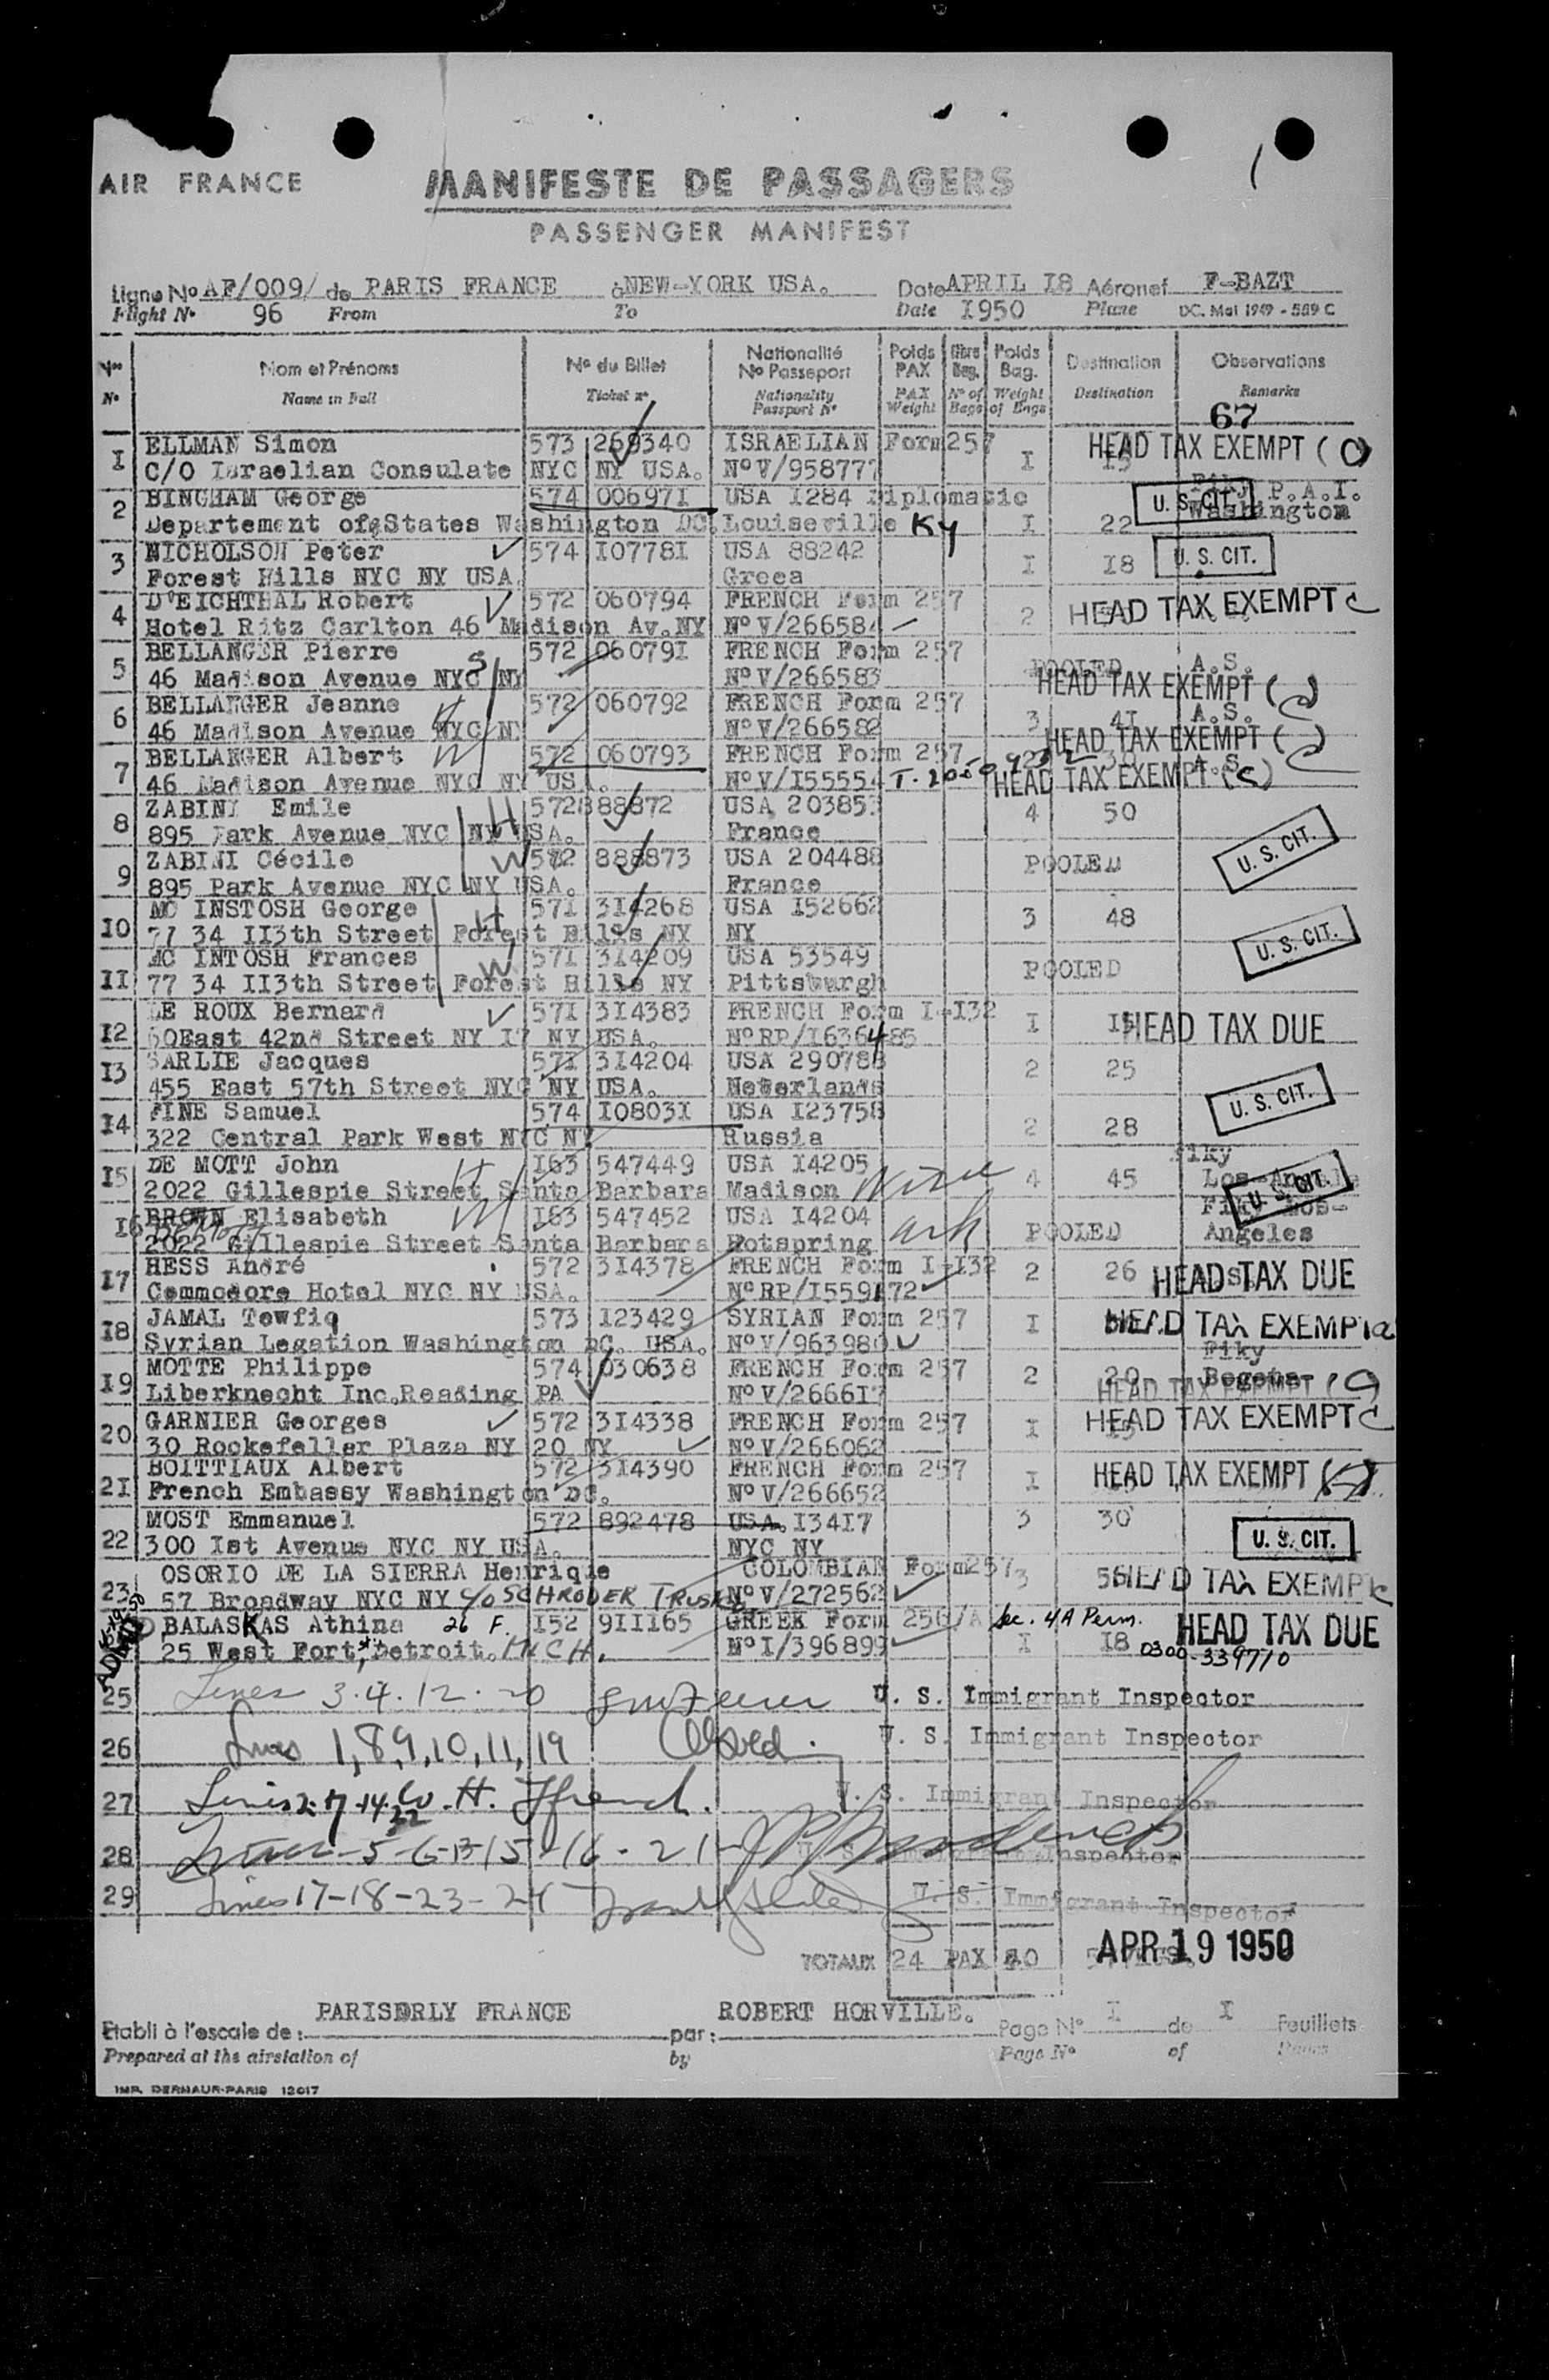 AIR FRANCE
MANIFESTE DE PASSAGERS
PASSENGER MANIFEST
Ligne No AF/009/ de PARIS FRANCE à NEW-YORK USA. Date APRIL I8 Aéronef F-BAZT
Flight No 96 From To Date I950 Plane DC. Mai 1949 - 559 C
Nos Nom et Prénoms No du Billet Nationalité No Passeport Poids PAX Nbre Bag. Poids Bag. Destination Observations
No Name in Full Ticket no Nationality Passport No PAX Weight No of Bags Weight of Bags Destination Remarks
67
I ELLMAN Simon 573 269340 ISRAELIAN Form 257 HEAD TAX EXEMPT (
C/O Israelian Consulate NYC NY USA. No V/958777 I I5
2 BINGHAM George 574 00697I USA I284 Diplomatic U. S. CIT. P.A.I.
Departement of States Washington DC. Louiseville Ky I 22 Washington
3 NICHOLSON Peter 574 I0778I USA 88242 I I8 U. S. CIT.
Forest Hills NYC NY USA. Greea
4 D'EICHTHAL Robert 572 060794 FRENCH Form 257 2 HEAD TAX EXEMPT C
Hotel Ritz Carlton 46 Madison Av.NY No V/266584
5 BELLANGER Pierre 572 06079I FRENCH Form 257 POOLED A.S.
46 Madison Avenue NYC NY No V/266583 HEAD TAX EXEMPT (
6 BELLANGER Jeanne 572 060792 FRENCH Form 257 3 4I A.S.
46 Madison Avenue NYC NY No V/266582 HEAD TAX EXEMPT (
7 BELLANGER Albert 572 060793 FRENCH Form 257 A.S.
46 Madison Avenue NYC NY USA. No V/I5554 HEAD TAX EXEMPT (C)
8 ZABINI Emile H 572 888872 USA 20385 4 50
895 Park Avenue NYC NY USA. France
9 ZABINI Cécile W 572 888873 USA 204488 POOLED U. S. CIT.
895 Park Avenue NYC NY USA. France
I0 MC INSTOSH George H 57I 3I4268 USA I52662 3 48
77 34 II3th Street Forest Hills NY NY U. S. CIT.
II MC INTOSH Frances W 57I 3I4209 USA 53549 POOLED
77 34 II3th Street Forest Hills NY Pittsburgh
I2 LE ROUX Bernard 57I 3I4383 FRENCH Form I-I32 I I5 HEAD TAX DUE
60East 42nd Street NY I7 NY USA. No RP/I636485
I3 SARLIE Jacques 57I 3I4204 USA 290788 2 25
455 East 57th Street NYC NY USA. Neterlands
I4 FINE Samuel 574 I0803I USA I23758 2 28 U. S. CIT.
322 Central Park West NYC NY Russia
I5 DE MOTT John H 163 547449 USA I4205 4 45 Fiky
2022 Gillespie Street Santa Barbara Madison Los-Angele
I6 BROWN Elisabeth W I63 547452 USA I4204 Ark POOLED U. S. CIT. Fiky Los-
2022 Gillespie Street Santa Barbara Hotspring Angeles
I7 HESS André 572 3I4378 FRENCH Form I-I32 2 26 HEAD TAX DUE
Commodore Hotel NYC NY USA. No RP/I559172
I8 JAMAL Towfiq 573 I23429 SYRIAN Form 257 I HEAD TAX EXEMPT
Syrian Legation Washington DC. USA. No V/963980
I9 MOTTE Philippe 574 030638 FRENCH Form 257 2 20 Fiky Bogota
Liberknecht Inc.Reading PA No V/266617 HEAD TAX EXEMPT
20 GARNIER Georges 572 3I4338 FRENCH Form 257 I I5 HEAD TAX EXEMPT C
30 Rockefeller Plaza NY 20 NY No V/266062
2I BOITTIAUX Albert 572 3I4390 FRENCH Form 257 I HEAD TAX EXEMPT
French Embassy Washington DC. No V/266652
22 MOST Emmanuel 572 892478 USA. I34I7 3 30
300 Ist Avenue NYC NY USA. NYC NY U. S. CIT.
23 OSORIO DE LA SIERRA Henriqie COLOMBIAN Form257 3 56 HEAD TAX EXEMPT
57 Broadway NYC NY c/o SCHRODER TRUST No V/272562
BALASKAS Athina 26 F. I52 9III65 GREEK Form 256/A Sec. 4A Perm. I I8 HEAD TAX DUE
25 West Fort, Detroit. MICH. No I/396899 0300-339710
25 Lines 3.4.12.20 U. S. Immigrant Inspector
26 Lines 1,8,9,10,11,19 U. S. Immigrant Inspector
27 Lines 2.7.14.22 W. H. Ffrench. U. S. Immigrant Inspector
28 Lines-5-6-13-15-16-21 U. S. Immigrant Inspector
29 Lines 17-18-23-24 U. S. Immigrant Inspector
TOTAUX 24 PAX 40 APR 19 1950
Etabli à l'escale de : PARISORLY FRANCE par : ROBERT HORVILLE. Page No I de I Feuillets
Prepared at the airstation of by Page No of Pages
IMP. DERNAUR-PARIS 12017